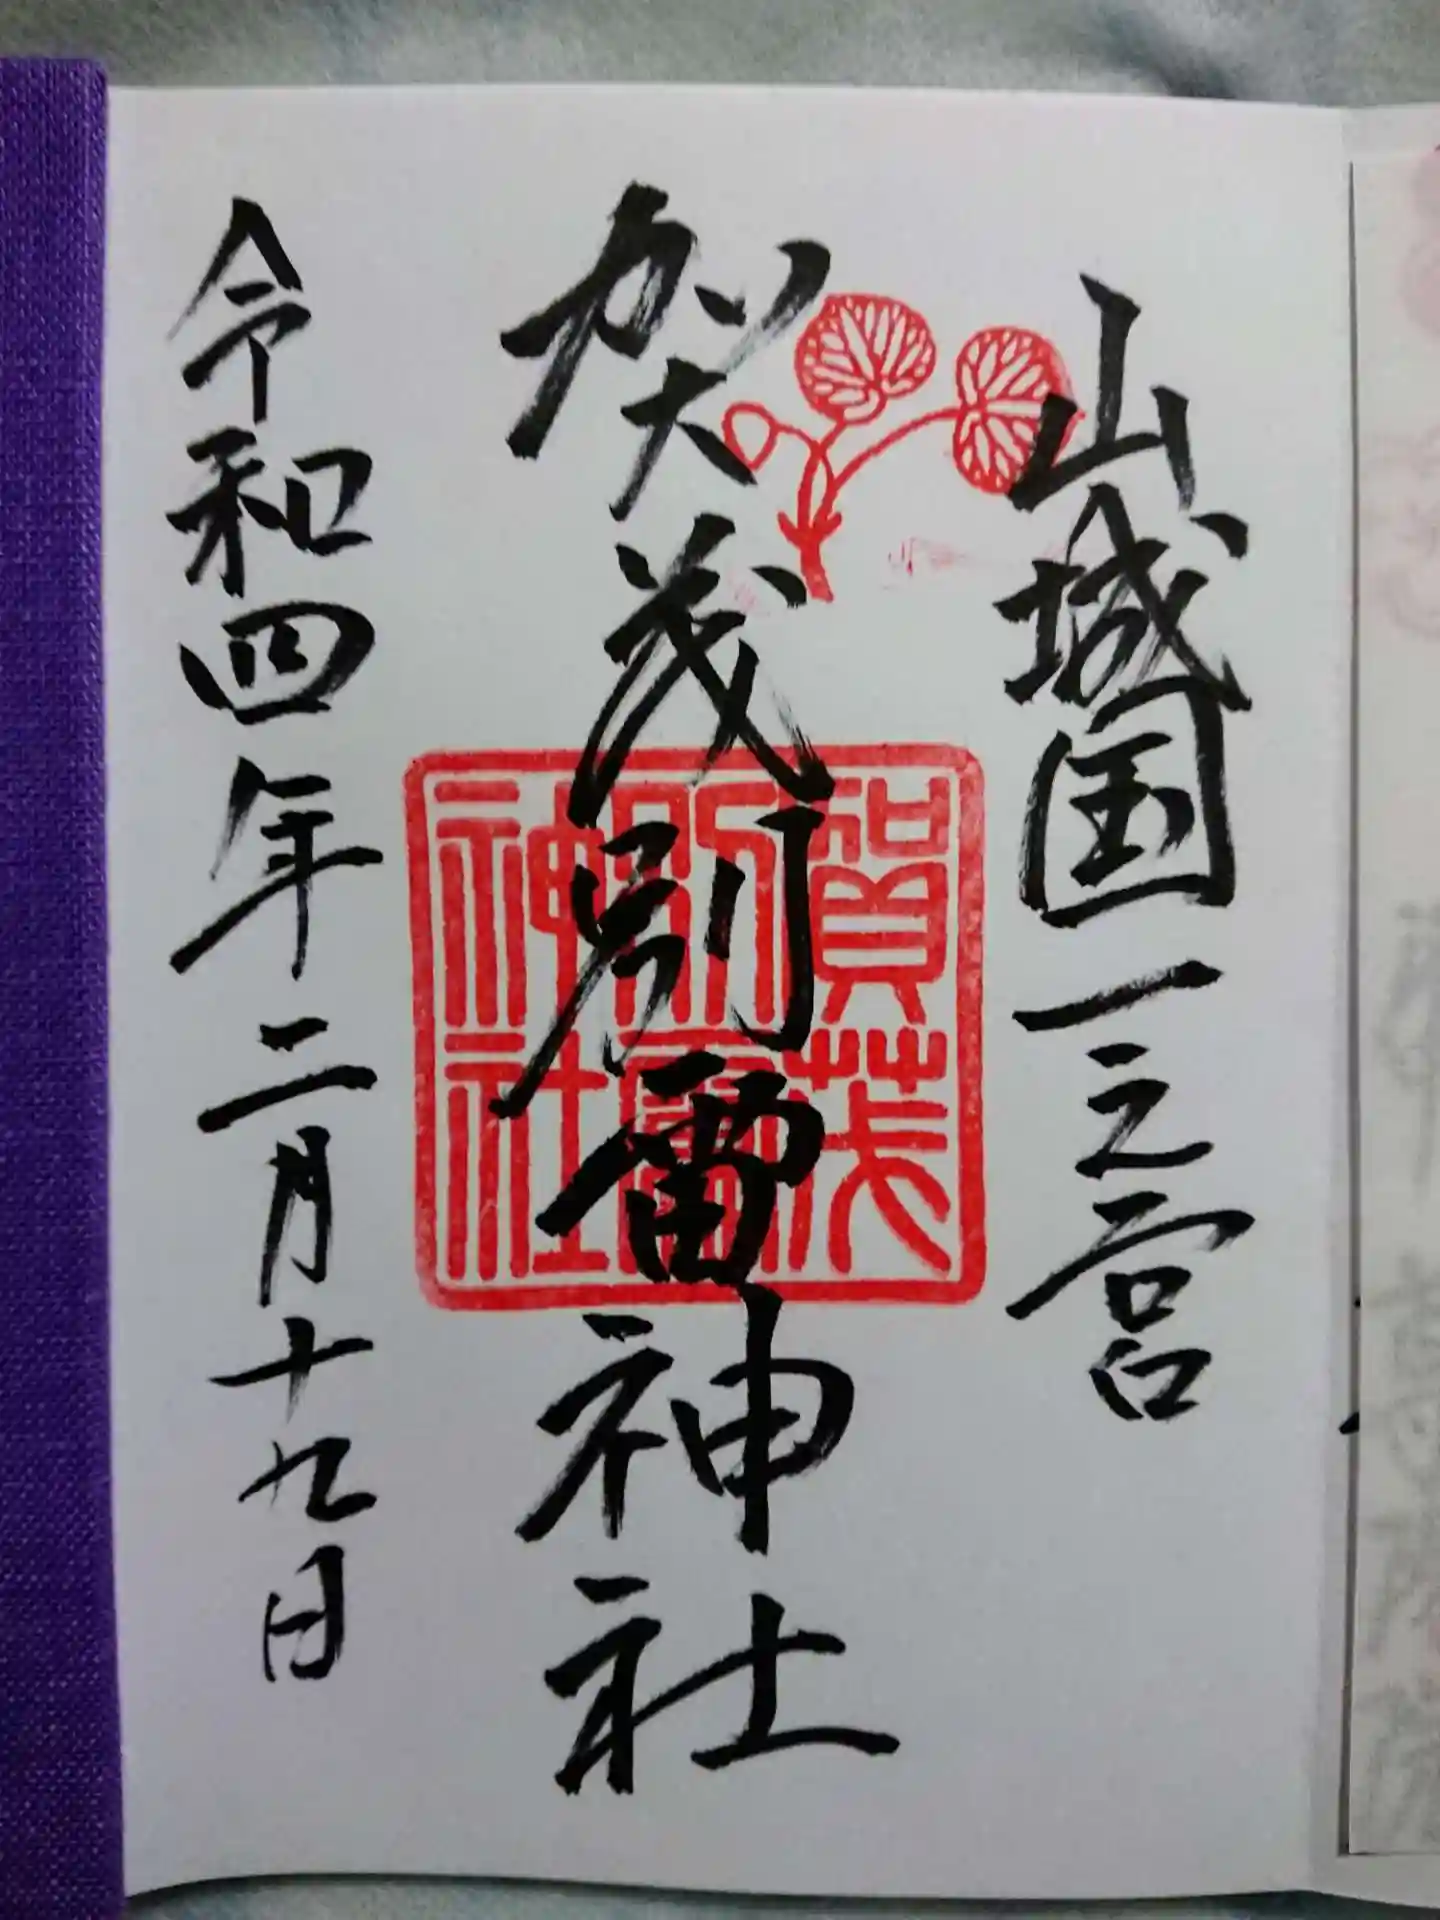 山城国一之宮
賀茂別雷神社
賀茂
別雷
神社
令和四年二月十九日